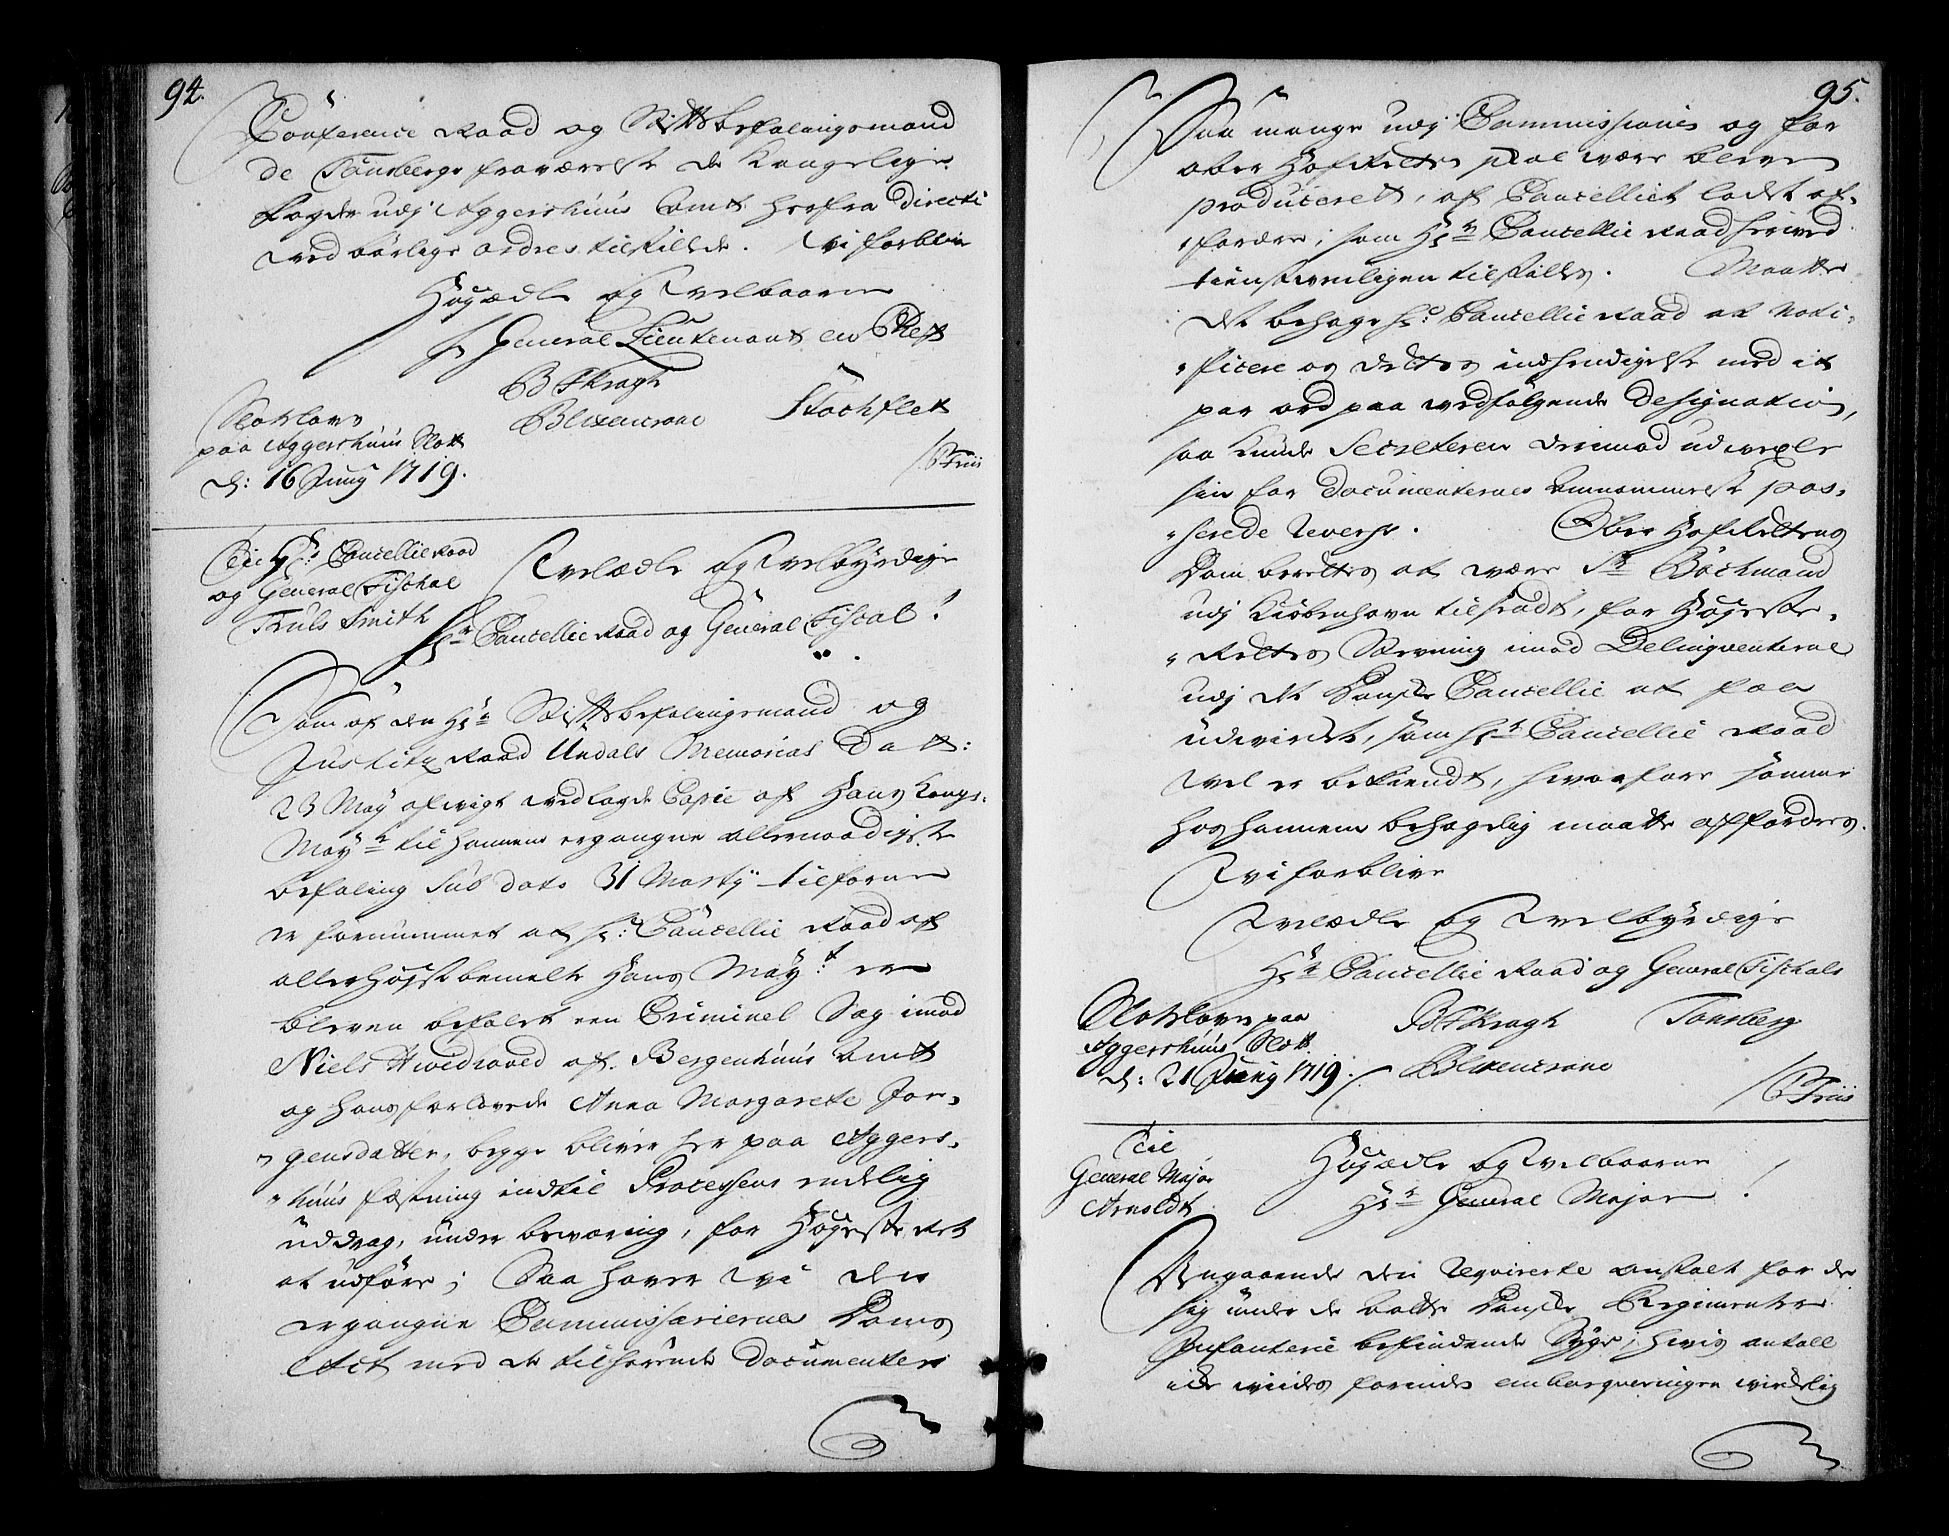 94.
Conference Raad og Stifts befalingsmand
de Tönsbergs fraværelse de Kongelige
fogder udj Aggershuus Amt herfra directè
ved börlige ordres tilstillede. Vi forblive
Högædle og Velbaarne
Hr General Lieutenant en Chefs
B F Kragh
Blixencrone Stochflet
Slotzlovn
paa Aggershuus Slott
d: 16 Juny 1719.
/P Friis
Til Hr: Cancellie Raad
og General Fischal
Truls Smith
Velædle og Velbyrdige
Hr Cancellie Raad og General Fiscal!
Som af den Hr Stifftsbefalingsmand og
Justitz Raad Undals Memorial Datt:
23 May afvigt vedlagde Copie af Hans Kongl.
Mayt til hannem ergangne allernaadigste
befaling sub dato 31 Marty tilforne
er fornummet at Hr: Cancellie Raad af
allerhöjstbemelte Hans Mayt: er
bleven befalet een Criminel Sag imod
Niels Hvedvoved af Bergenhuus Amt
og hans forlovede Anna Margarete Jör-
gensdatter, begge bliver her paa Aggers-
huus fæstning indtil Processens endelig
uddrag, under bevaring, for Högeste Ret
at udföre; Saa haver vi den
ergangne Commissariernes Doms
Act med de tilhörende Documenter
95.
Saa mange udj Commissionen og for
ober HofRetten skal være bleven
produceret, af Cancelliet ladet af-
fordre, som Hr Cancellie Raad herved
tienstvenligen tilstilles. Maatte
det behage Hr: Cancellie Raad at Noti-
ficere os dettes indhendigelse med it
par ord paa vedfölgende Designation,
saa kunde Secreteren derimod udvexle
sin for Documenternes annammelse pas-
serede Revers. Ober HofRettens
Dom berettes at være Sr Böchmand
udj Kiöbenhavn tilsendt, for Högeste-
Rettes Stevning imod Delinqventerne
udj det Danske Cancellie at faa
udvirket, som Hr Cancellie Raad
vel er bekiendt, hvorfore samme
hos hannem behagelig maatte affordres.
Vi forblive
Velædle og Velbyrdige
Hr Cancellie Raad og General Fischals
Slotzlovn paa
Aggershuus Slott
d: 21 Juny 1719.
B F Kragh Tonsberg
Blixencrone
/P Friis
Til
General Major
Arnoldt
Högædle og Velbaarne
Hr General Major!
Angaaende den Reqvirerte anstalt for de
sig under de batte Danske Regimenter
Infanterie befindende Syge, hvis antall
icke vuides forinden embarqveringen virkelig